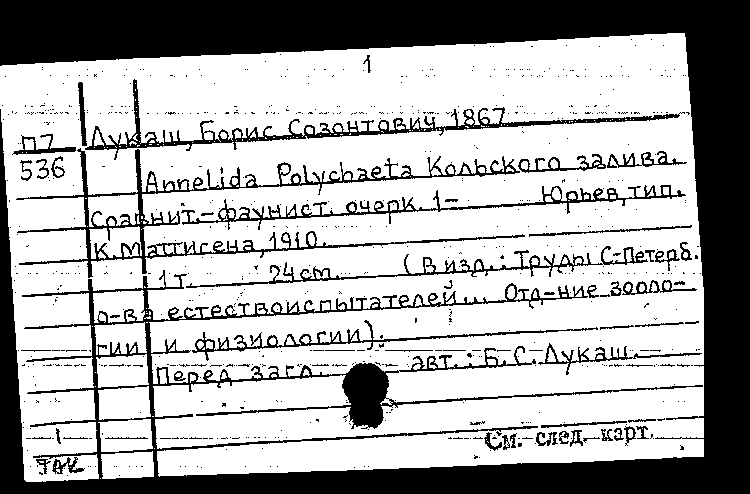 1
П7 Лукаш, Борис Созонтович, 1867
536 Annelida Polychaeta Кольского залива.
Сравнит.-фаунист. очерк. 1- Юрьев, тип.
К. Маттисена, 1910.
1 т. 24 cm. (В изд.: Труды С.-Петерб.
о-ва естествоиспытателей... Отд-ние зооло-
гии и физиологии).
Перед загл. авт.: Б. С. Лукаш.
1
См. след. карт.